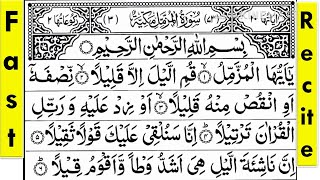 Fast
Recite
اٰیَاتُهَا ٢٠ (٧٣) سُوْرَةُ الْمُزَّمِّلِ مَكِّيَّةٌ (٣) رُكُوْعَاتُهَا ٢
بِسْمِ اللهِ الرَّحْمٰنِ الرَّحِيْمِ
يٰۤاَيُّهَا الْمُزَّمِّلُ ۙ قُمِ الَّيْلَ اِلَّا قَلِيْلًا ۙ نِّصْفَهٗۤ
اَوِ انْقُصْ مِنْهُ قَلِيْلًا ۙ اَوْ زِدْ عَلَيْهِ وَ رَتِّلِ
الْقُرْاٰنَ تَرْتِيْلًا ؕ اِنَّا سَنُلْقِيْ عَلَيْكَ قَوْلًا ثَقِيْلًا
اِنَّ نَاشِئَةَ الَّيْلِ هِيَ اَشَدُّ وَطْاً وَّ اَقْوَمُ قِيْلًا